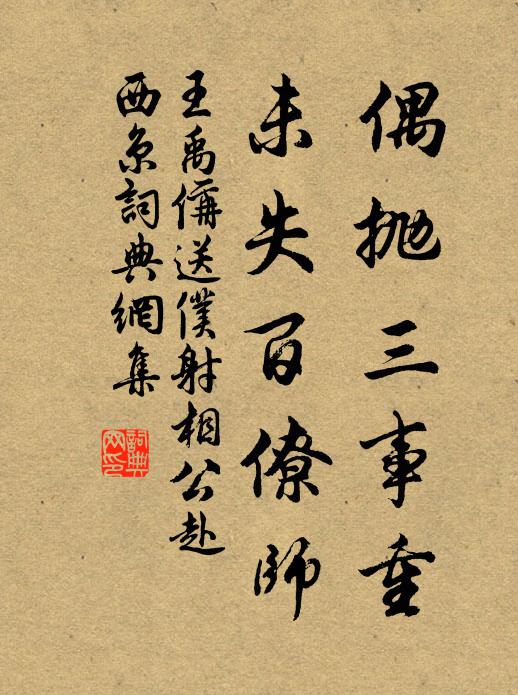 偶抛三事重
未失百僚師
王禹偁送僕射相公赴
西京詞典網集
詞典網印